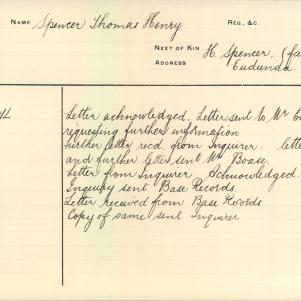 NAME Spencer Thomas Henry REG, &C.
NEXT OF KIN H. Spencer, (fa
ADDRESS Eudunda
Letter acknowledged. Letter sent to Mr
requesting further information
Further letter recd. from Inquirer. lette
and further letter sent Mr Boase.
Letter from Inquirer Acknowledged.
Inquiry sent Base Records.
Letter received from Base Records
Copy of same sent Inquirer